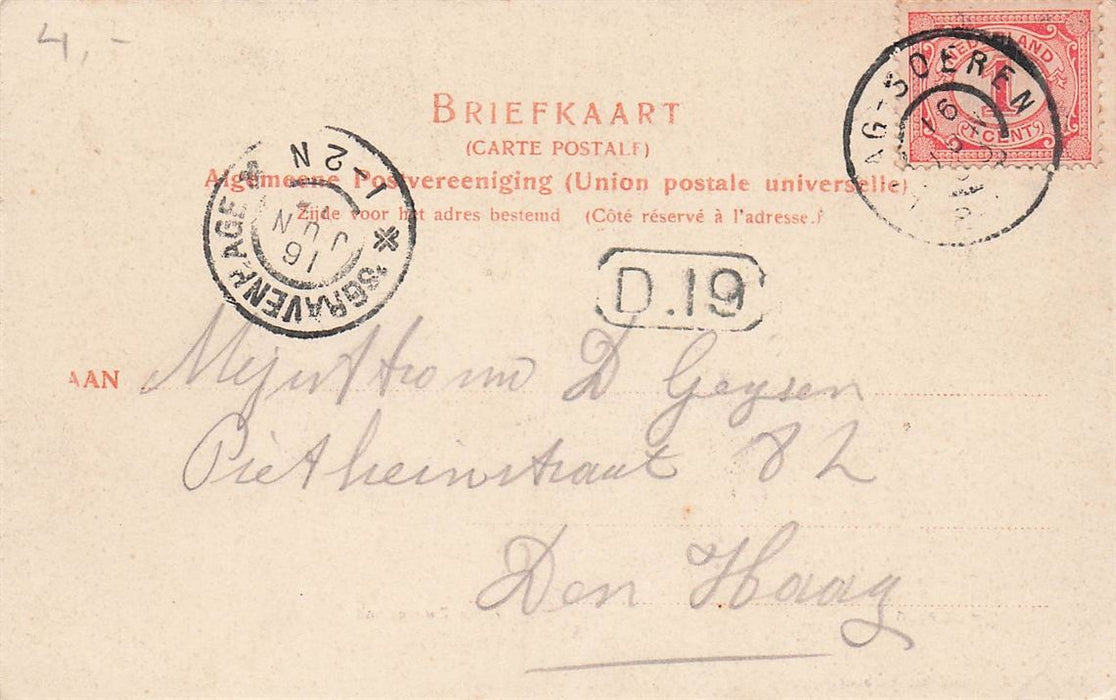 4,-
NEDERLAND
1
CENT
AG-SOEREN
BRIEFKAART
(CARTE POSTALE)
Algemeene Postvereeniging (Union postale universelle)
Zijde voor het adres bestemd (Côté réservé à l'adresse.)
'SGRAVENHAGE
1-2N
16
JUN
D.19
AAN Mejuffrouw D Geysen
Pietheinstraat 82
Den Haag